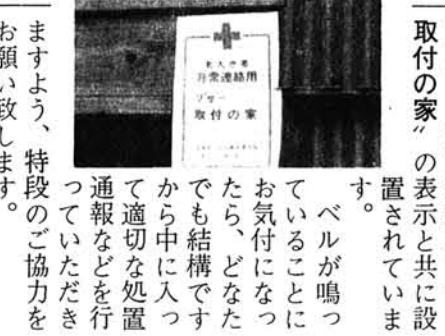 取付の家〟の表示と共に設
置されていま
す。
ベルが鳴っ
ていることに
お気付になっ
たら、どなた
でも結構です
から中に入っ
て適切な処置
通報などを行
っていただき
ますよう、特段のご協力を
お願い致します。
老人世帯
非常連絡用
ブザー
取付の家